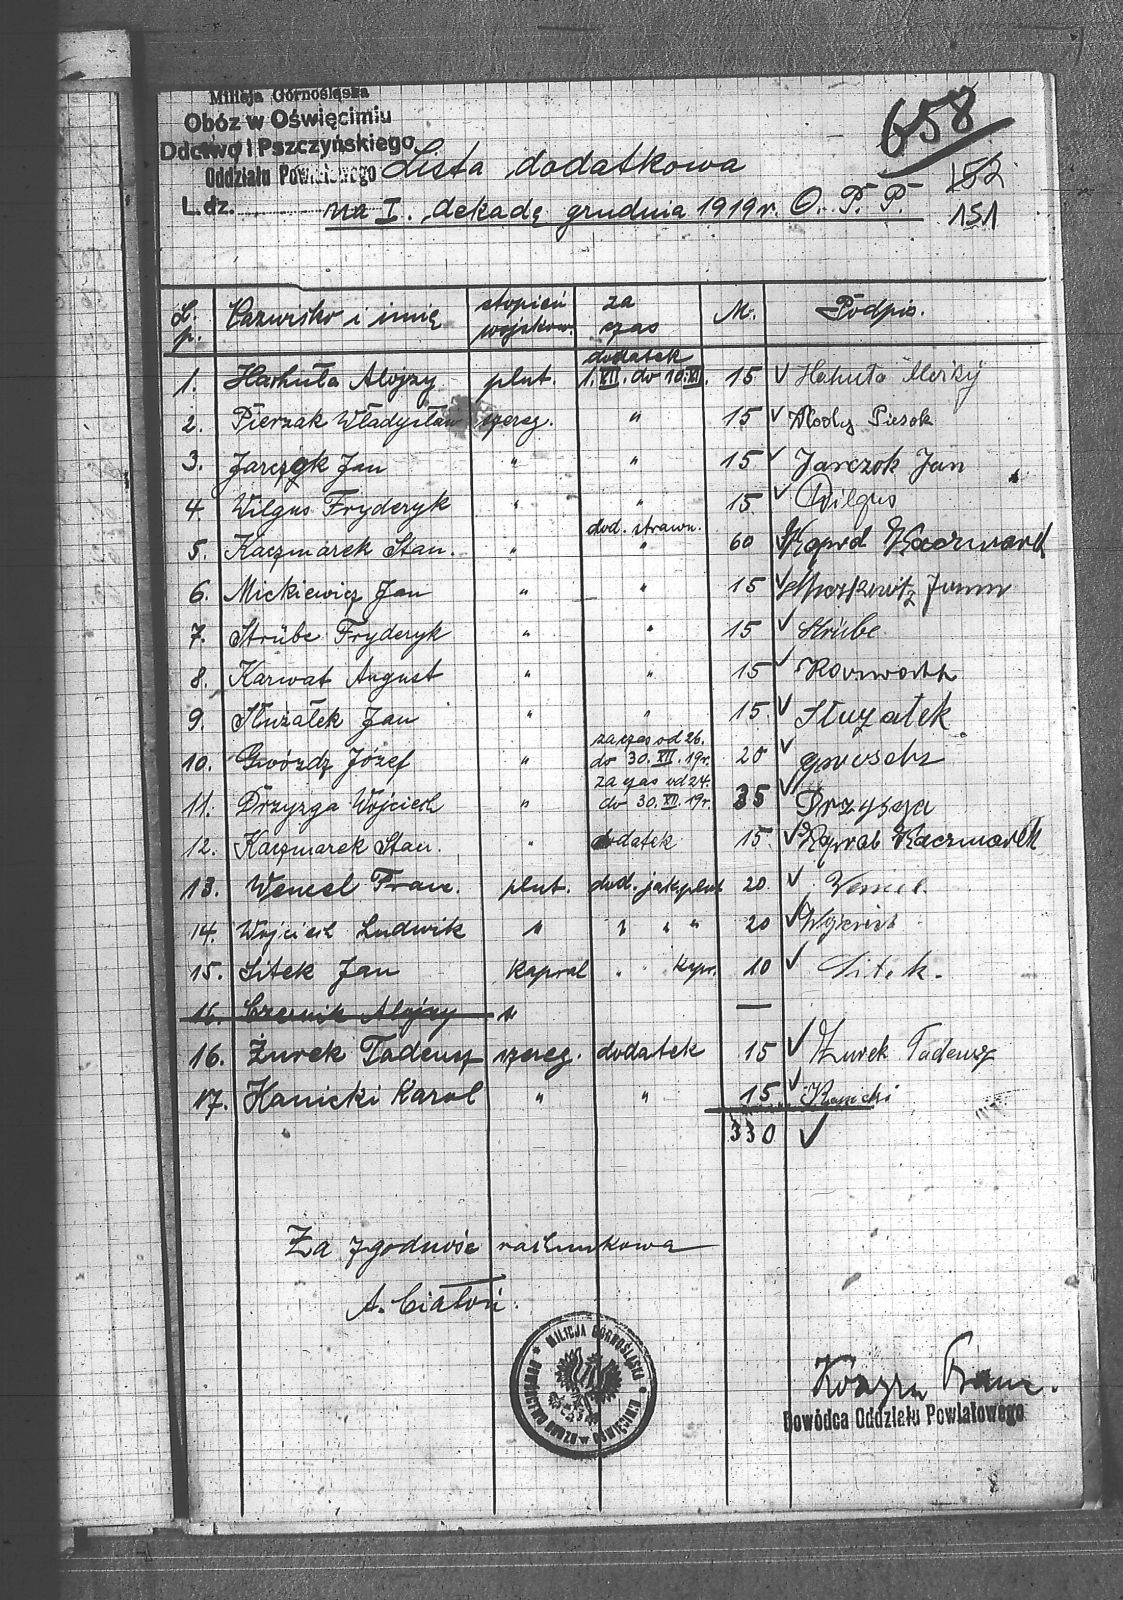 Milicja Górnośląska
Obóz w Oświęcimiu
Ddctwo I Pszczyńskiego
Oddziału Powiatowego
L. dz.
658
Lista dodatkowa
152
na I. dekadę grudnia 1919 r. O. P. P.
151
L. p. Nazwisko i imię stopień wojskow. za czas M. Podpis.
1. Hachuła Alojzy plut. dodatek 1. XII. do 10. XII. 15 ✓ Hachuła
2. Pierzak Władysław szereg. " 15 ✓
3. Jarczyk Jan " " 15 ✓ Jarczok Jan
4. Wilgus Fryderyk " " 15 ✓ Wilgus
5. Kaczmarek Stan. " dod. strawn. " 60 ✓
6. Mickiewicz Jan " — " 15 ✓
7. Strübe Fryderyk " " 15 ✓ Strübe
8. Karwat August " " 15 ✓
9. Służałek Jan " " 15. ✓ Słuzałek
10. Gwóźdź Józef " za czas od 26. do 30. XII. 19 r. 20 ✓
11. Przyzga Wojciech " za czas od 24. do 30. XII. 19 r. 35 ✓
12. Kaczmarek Stan. " dodatek 15. ✓ Kaczmarek
13. Wencel Franc. plut. dod. jak plut 20. ✓ Wencel
14. Wojciech Ludwik " " " " 20 ✓
15. Sitek Jan kapral " " kapr. 10 ✓ Sitek.
16. Czernik Alojzy " —
16. Żurek Tadeusz szereg. dodatek 15 ✓ Żurek Tadeusz
17. Hanicki Karol " " 15. ✓
330 ✓
Za zgodność rachunkową
A. Ciałoń.
MILICJA GÓRNOŚLĄSKA
DOWÓDZTWO OBOZU w OŚWIĘCIMIU
Franc.
Dowódca Oddziału Powiatowego